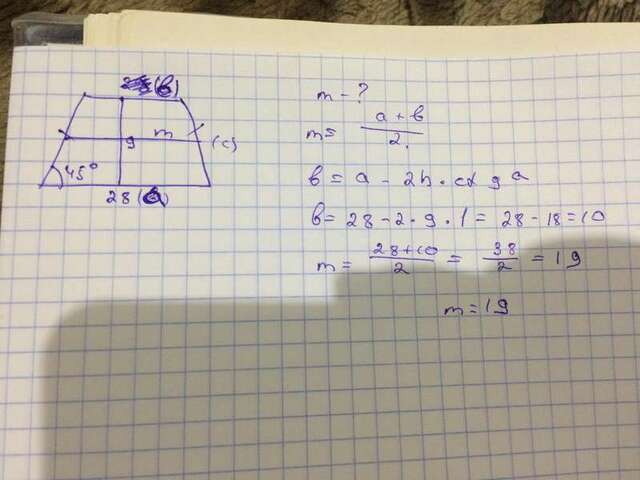 45°
28 (a)
9
m
(c)
(b)
m - ?
m = a + b / 2
b = a - 2h · ctg a
b = 28 - 2 · 9 · 1 = 28 - 18 = 10
m = 28 + 10 / 2 = 38 / 2 = 19
m = 19